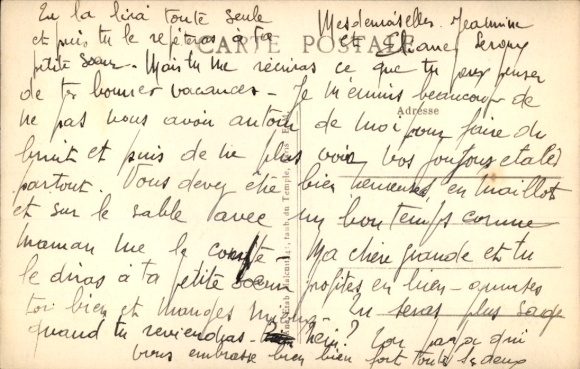 Tu la lira toute seule
et puis tu le répéteras à ta
petite soeur - Mais tu me récriras ce que tu peux penser
de tes bonnes vacances - Je m'ennuis beaucoup de
ne pas vous avoir autour de moi pour faire du
bruit et puis de ne plus voir vos joujoux étalés
partout. Vous devez être bien heureuses, en maillot
et sur le sable avec un bon temps comme
maman me le conte Ma chère grande et tu
le diras à ta petite soeur profites en bien - amuses
toi bien et manges mieux Tu seras plus sage
quand tu reviendras - hein? Ton papa qui
vous embrasse bien bien fort toutes les deux
Mesdemoiselles Jeannine
et Eliane
CARTE POSTALE
Adresse